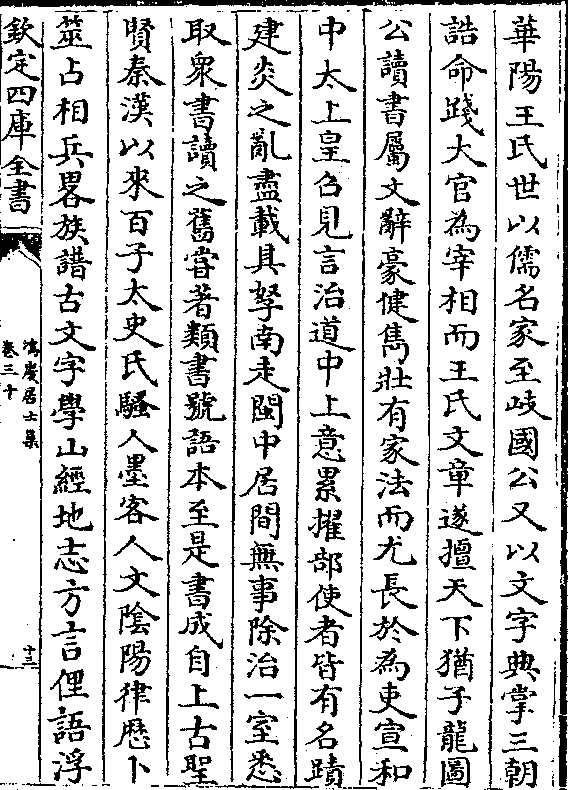 華陽王氏世以儒名家至岐國公又以文字典掌三朝
誥命踐大官為宰相而王氏文章遂擅天下猶子龍圖
公讀書屬文辭豪健雋壯有家法而尤長於為吏宣和
中太上皇召見言治道中上意累擢部使者皆有名蹟
建炎之亂盡載其孥南走閩中居間無事除治一室悉
取衆書讀之舊嘗著類書號語本至是書成自上古聖
賢秦漢以來百子太史氏騷人墨客人文陰陽律歴卜
筮占相兵畧族譜古文字學山經地志方言俚語浮
欽定四庫全書
鴻慶居士集
卷三十
十三